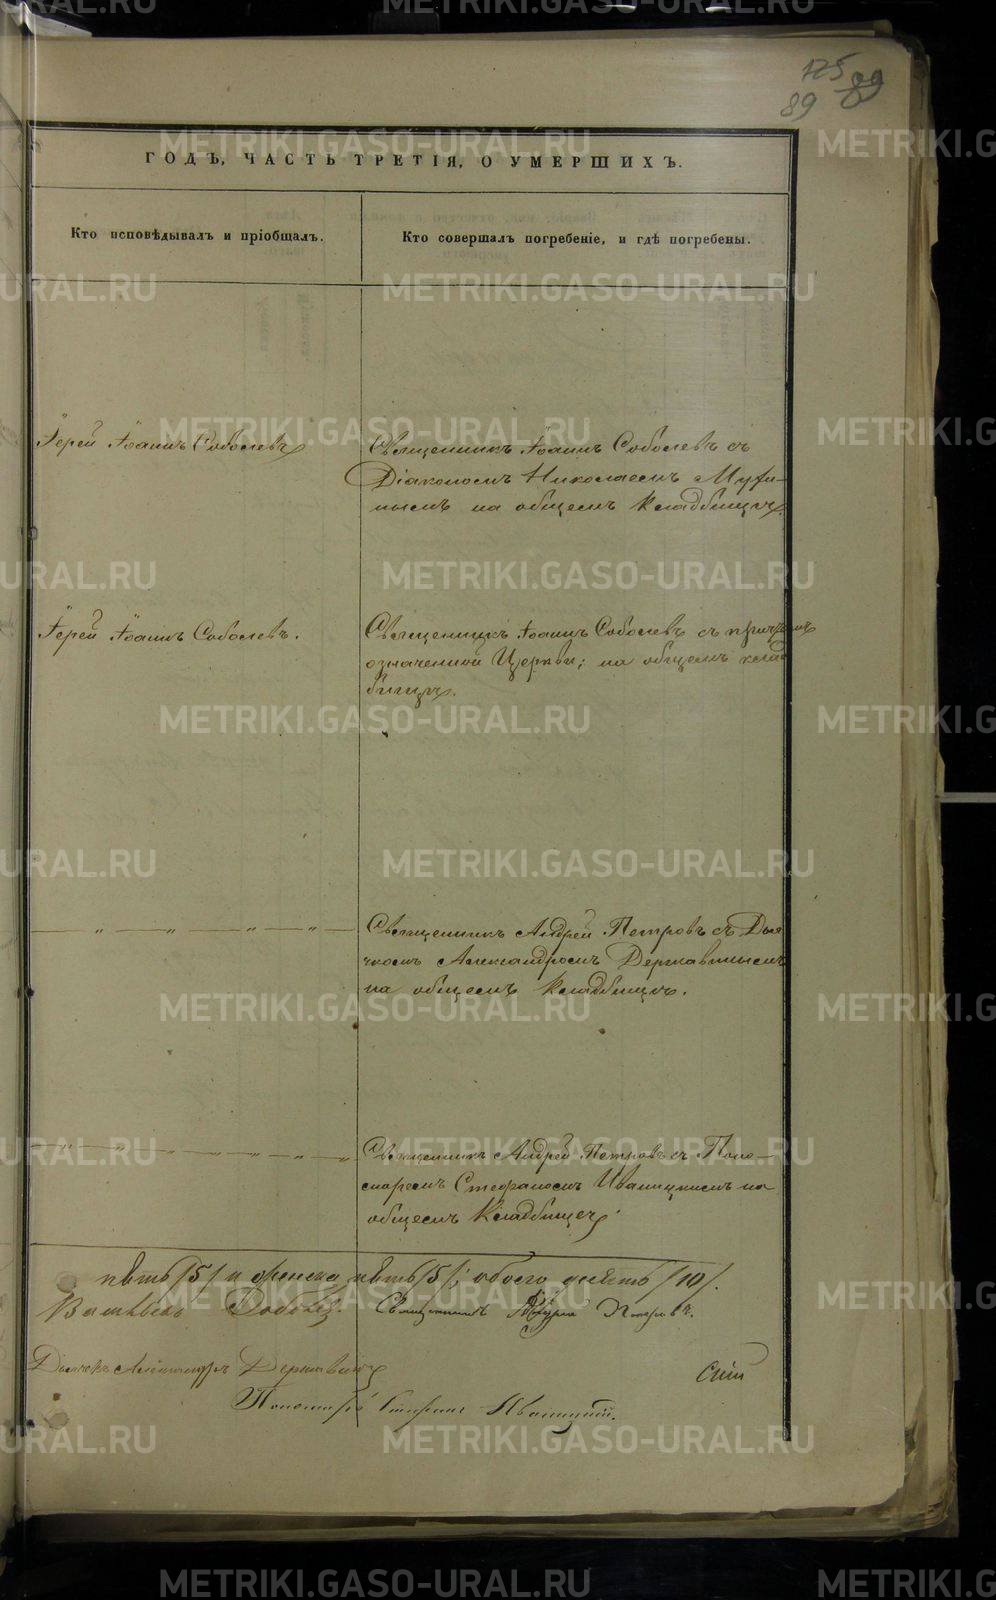 125
89 89
ГОДЪ, ЧАСТЬ ТРЕТІЯ, О УМЕРШИХЪ.
Кто исповѣдывалъ и пріобщалъ.
Кто совершалъ погребеніе, и гдѣ погребены.
Іерей Іоаннъ Соболевъ
Священникъ Іоаннъ Соболевъ съ
Діакономъ Николаемъ
на общемъ кладбищѣ.
Іерей Іоаннъ Соболевъ.
Священникъ Іоаннъ Соболевъ съ причтомъ
означенной Церкви; на общемъ клад
бищѣ.
Священникъ Андрей Петровъ съ Дья
чкомъ Александромъ Державинымъ
на общемъ кладбищѣ.
Священникъ Андрей Петровъ съ Поно-
маремъ Стефаномъ Иваницкимъ на
общемъ Кладбищѣ
пять /5/ и женска пять /5/; обоего десять /10/.
Священникъ Андрей Петровъ.
Дьячекъ Александръ Державинъ
Пономарь Стефанъ Иваницкій.
METRIKI.GASO-URAL.RU